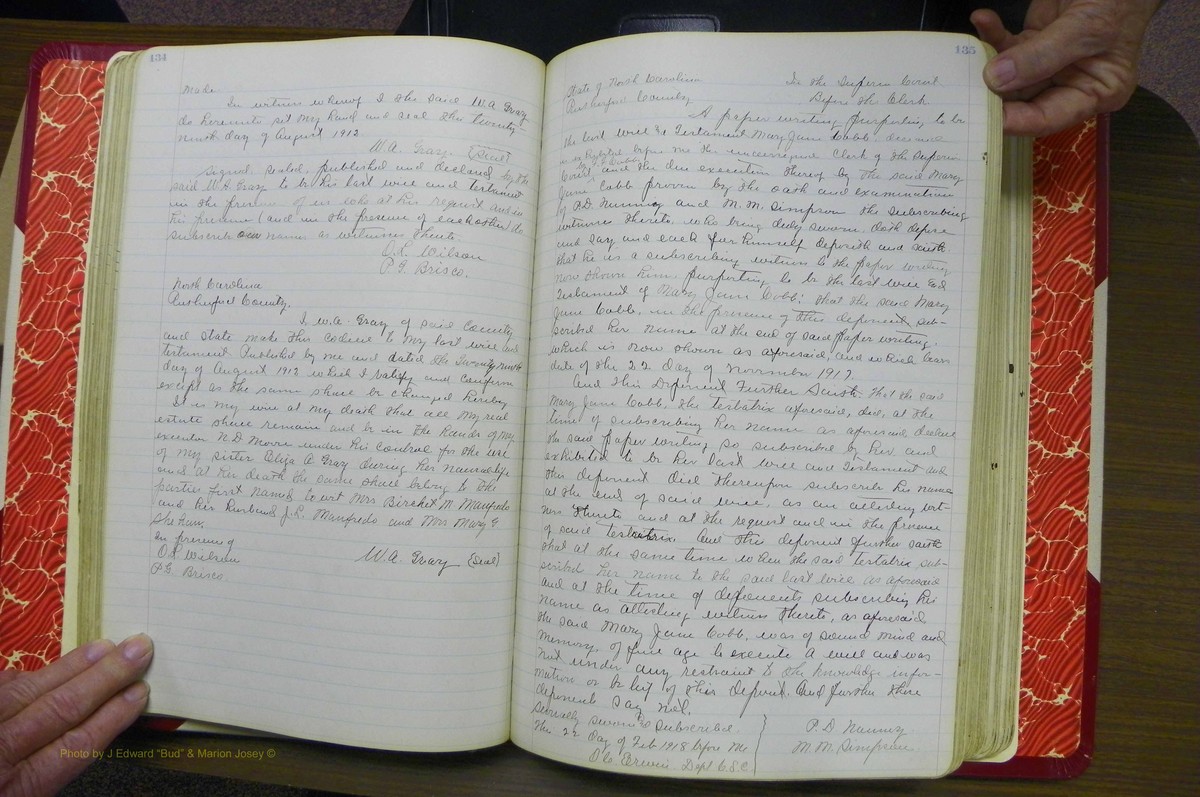 134
Make
In witness whereof I the said W.A. Gray
do hereunto set my hand and seal this twenty-
ninth day of August 1912.
W.A. Gray (Seal)
Signed, sealed, published and declared by the
said W.A. Gray to be his last will and testament
in the presence of us who at his request and in
his presence (and in the presence of each other) do
subscribe our name as witnesses thereto.
O.L. Wilson
P.G. Brisco.
North Carolina
Rutherford County.
I, W.A. Gray, of said County
and State make this codicil to my last will and
testament Published by me and dated the Twenty ninth
day of August 1912 which I ratify and confirm
except as the same shall be changed hereby
It is my will at my death that all my real
estate shall remain and be in the hands of my
executor N.D. Moore under his control for the use
of my sister Eliza A Gray during her natural life
and at her death the same shall belong to the
parties first named to wit Mrs M. Manfredo
and her husband J.L. Manfredo and Mrs Mary E
Shehan.
In presence of
O.L. Wilson
W.A. Gray (Seal)
P.G. Brisco.
135
State of North Carolina
Rutherford County
In the Superior Court
Before the Clerk.
A paper writing purporting to be
the last will & Testament Mary Jane Cobb, deceased
is exhibited before me the undersigned Clerk of the Superior
Court, and the due execution thereof by the said Mary
Jane Cobb proven by the oath and examination
of P.D. Nanney and M.M. Simpson the subscribing
witnesses thereto, who being duly sworn doth depose
and say and each for himself deposeth and saith
that he is a subscribing witness to the paper writing
now shown him purporting to be the last will and
Testament of Mary Jane Cobb; that the said Mary
Jane Cobb, in the presence of this deponent, sub-
scribed her name at the end of said paper writing,
which is now shown as aforesaid, and which bears
date of the 22 day of November 1917.
And this Deponent Further Saith. That the said
Mary Jane Cobb, the testatrix aforesaid, did, at the
time of subscribing her name as aforesaid declare
the said paper writing so subscribed by her and
exhibited to be her last will and Testament and
this deponent did thereupon subscribe his name
at the end of said will, as an attesting wit-
ness thereto and at the request and in the presence
of said testatrix And this deponent further saith
that at the same time when the said testatrix sub-
scribed her name to the said last will as aforesaid
and at the time of deponents subscribing his
name as attesting witness thereto, as aforesaid
the said Mary Jane Cobb, was of sound mind and
memory, of full age to execute a will and was
not under any restraint to the knowledge infor-
mation or belief of this deponent. And further these
deponents say not.
Severally sworn & Subscribed
this 22 day of Feb 1918 before me
Erwin Dept C.S.C.
P.D. Nanney
M.M. Simpson
Photo by J Edward "Bud" & Marion Josey ©